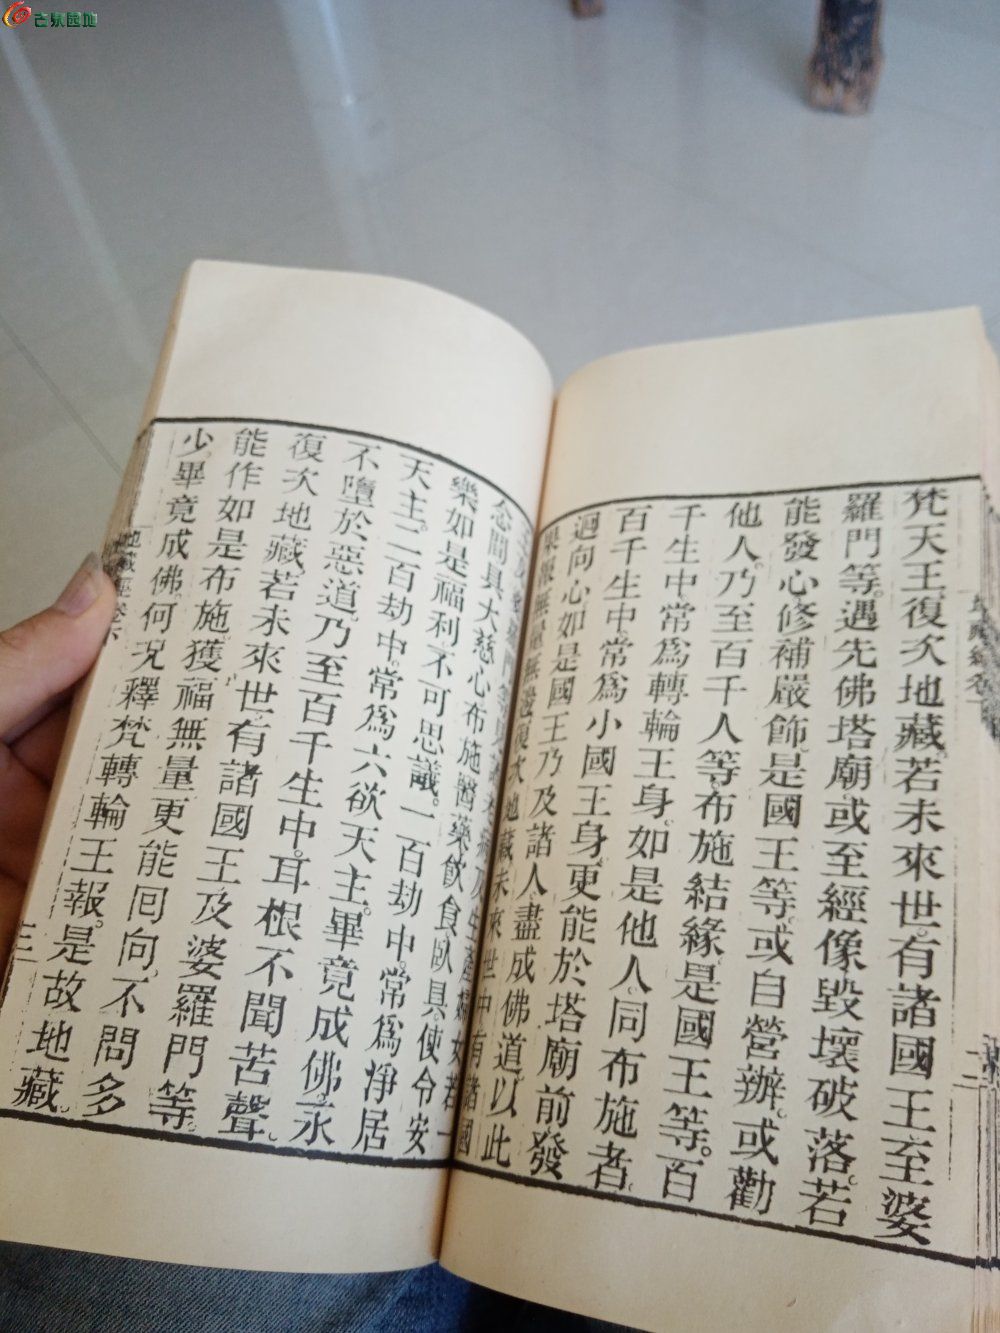 古泉园地
梵天王。復次地藏。若未來世。有諸國王至婆
羅門等。遇先佛塔廟。或至經像。毀壞破落。若
能發心修補嚴飾。是國王等。或自營辦。或勸
他人。乃至百千人等。布施結緣。是國王等。百
千生中。常爲轉輪王身。如是他人。同布施者。
百千生中。常爲小國王身。更能於塔廟前。發
迴向心。如是國王。乃及諸人。盡成佛道。以此
果報。無量無邊。復次地藏。未來世中。有諸國
王及婆羅門等。見諸老病。及生產婦女。若一
念間。具大慈心。布施醫藥飲食臥具。使令安
樂。如是福利。不可思議。一百劫中。常爲淨居
天主。二百劫中。常爲六欲天主。畢竟成佛。永
不墮於惡道。乃至百千生中。耳根不聞苦聲。
復次地藏。若未來世。有諸國王及婆羅門等。
能作如是布施。獲福無量。更能囘向。不問多
少。畢竟成佛。何況釋梵轉輪王報。是故地藏。
地藏經卷下
三